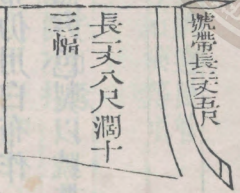 號帶長二丈五尺
長一丈八尺濶十
三幅